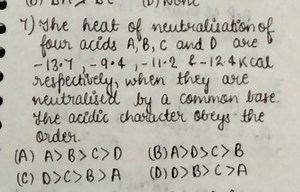 (D) None
7) The heat of neutralisation of
four acids A, B, C and D are
-13.7, -9.4, -11.2 & -12.4 Kcal
respectively, when they are
neutralised by a common base.
The acidic character obeys the
order.
(A) A>B>C>D (B) A>D>C>B
(C) D>C>B>A (D) D>B>C>A